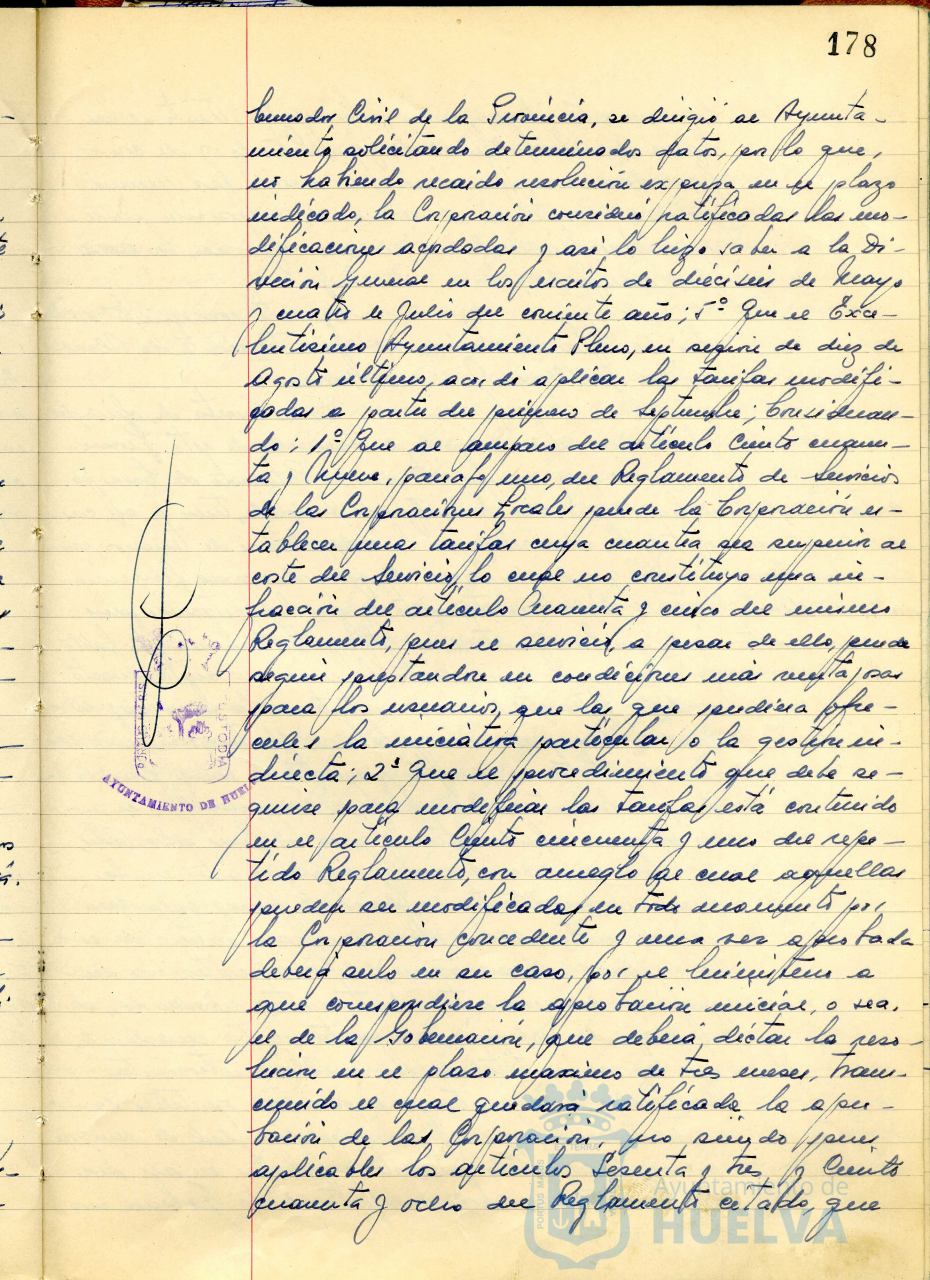 178
bernador Civil de la Provincia, se dirigió al Ayunta-
miento solicitando determinados datos, por lo que,
no habiendo recaido resolución expresa en el plazo
indicado, la Corporación consideró ratificadas las mo-
dificaciones acordadas y así lo hizo saber a la Di-
rección General en los escritos de dieciseis de Mayo
y cuatro de Julio del corriente año; 5º Que el Exce-
lentísimo Ayuntamiento Pleno, en sesión de diez de
Agosto último, acordó aplicar las tarifas modifi-
cadas a partir del primero de Septiembre; Consideran-
do: 1º Que al amparo del artículo Ciento cuaren-
ta y Nueve, párrafo uno, del Reglamento de Servicios
de las Corporaciones Locales puede la Corporación es-
tablecer unas tarifas cuya cuantía sea superior al
coste del Servicio, lo cual no constituye una in-
fracción del artículo Cuarenta y cinco del mismo
Reglamento, pues el servicio, a pesar de ello, puede
seguir prestandose en condiciones más ventajosas
para los usuarios, que las que pudiera ofre-
cerles la iniciativa particular o la gestión in-
directa; 2º Que el procedimiento que debe se-
guirse para modificar las tarifas está contenido
en el artículo Ciento cincuenta y uno del repe-
tido Reglamento, con arreglo al cual aquellas
pueden ser modificadas en todo momento por
la Corporación concedente y una vez aprobada
deberá serlo en su caso, por el Ministerio a
que correspondiese la aprobación inicial, o sea,
el de la Gobernación, que deberá dictar la reso-
lución en el plazo máximo de tres meses, trans-
currido el cual quedará ratificada la apro-
bación de las Corporación, no siendo pues
aplicables los artículos Sesenta y tres y Ciento
cuarenta y ocho del Reglamento citado, que
AYUNTAMIENTO DE HUELVA
CUSTODIA
PORTUS MARIS
Ayuntamiento de
HUELVA